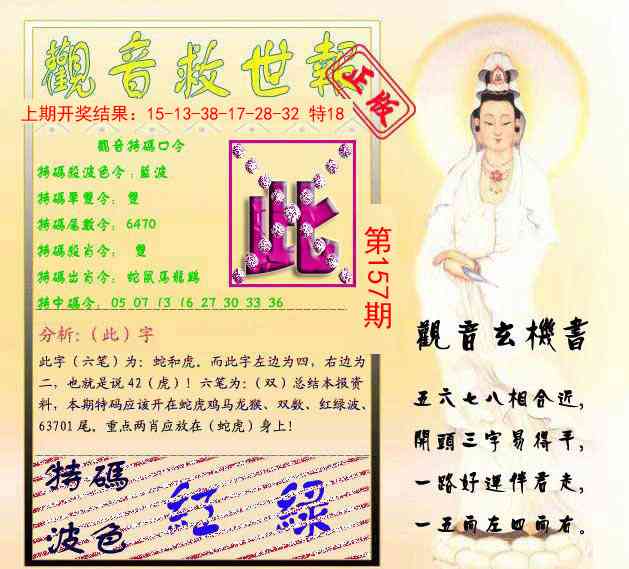 觀音救世報
正版
上期开奖结果：15-13-38-17-28-32 特18
觀音特碼口令
特碼殺波色令：藍波
特碼單雙令： 雙
特碼尾數令： 6470
特碼殺肖令： 雙
特碼出肖令： 蛇鼠馬龍鷄
特中碼令： 05 07 13 16 27 30 33 36
此
第157期
分析:（此）字
此字（六笔）为：蛇和虎。而此字左边为四，右边为
二，也就是说42（虎）！六笔为:（双）总结本报资
料，本期特码应该开在蛇虎鸡马龙猴、双数、红绿波、
63701尾。重点两肖应放在（蛇虎）身上!
特碼
波色
紅 綠
觀音玄機書
五六七八相合近，
開頭三字易得平，
一路好運伴君走，
一五面左四面右。